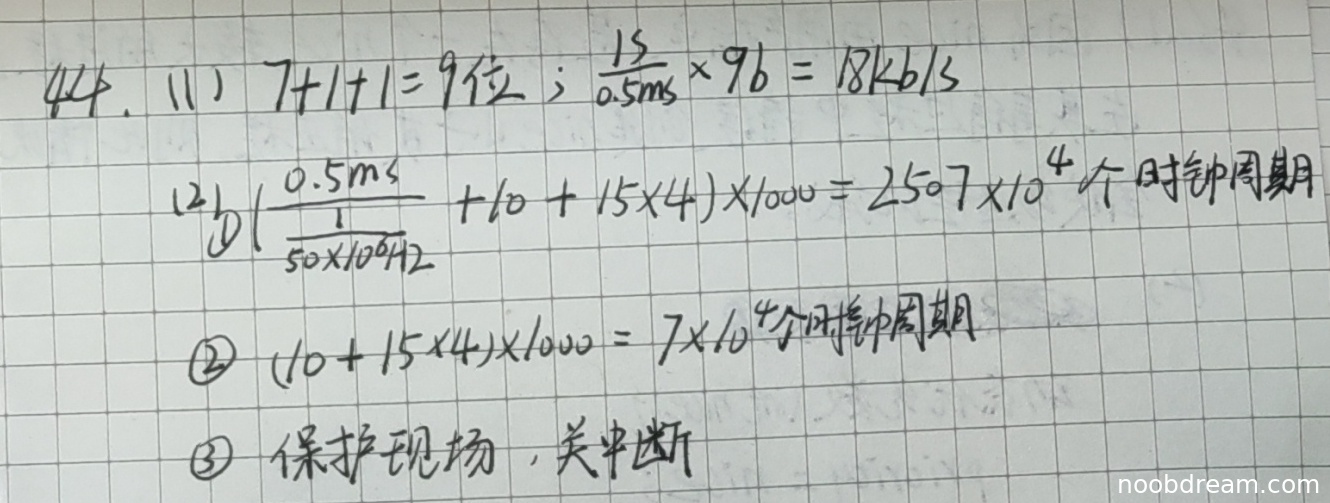 44. (1) 7+1+1=9位; 1s/0.5ms × 9b = 18kb/s
(2) ① (0.5ms/(1/50×10⁶Hz) + 10 + 15×4)×1000 = 2507×10⁴个时钟周期
② (10+15×4)×1000 = 7×10⁴个时钟周期
③ 保护现场, 关中断
noobdream.com